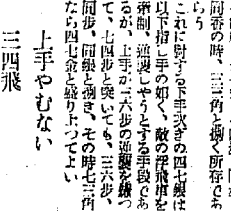 同香の時、三三角と捌く所存であ
らう
これに対する下手次ぎの四七銀は
以下指し手の如く、敵の浮飛車を
牽制、逆襲しやうとする手段であ
るが、上手が三六歩の逆襲を嫌つ
て、七四歩と突いても、三六歩、
同歩、同銀と捌き、その時七三角
なら四七金と盛り上つてよい
上手やむない
三四飛